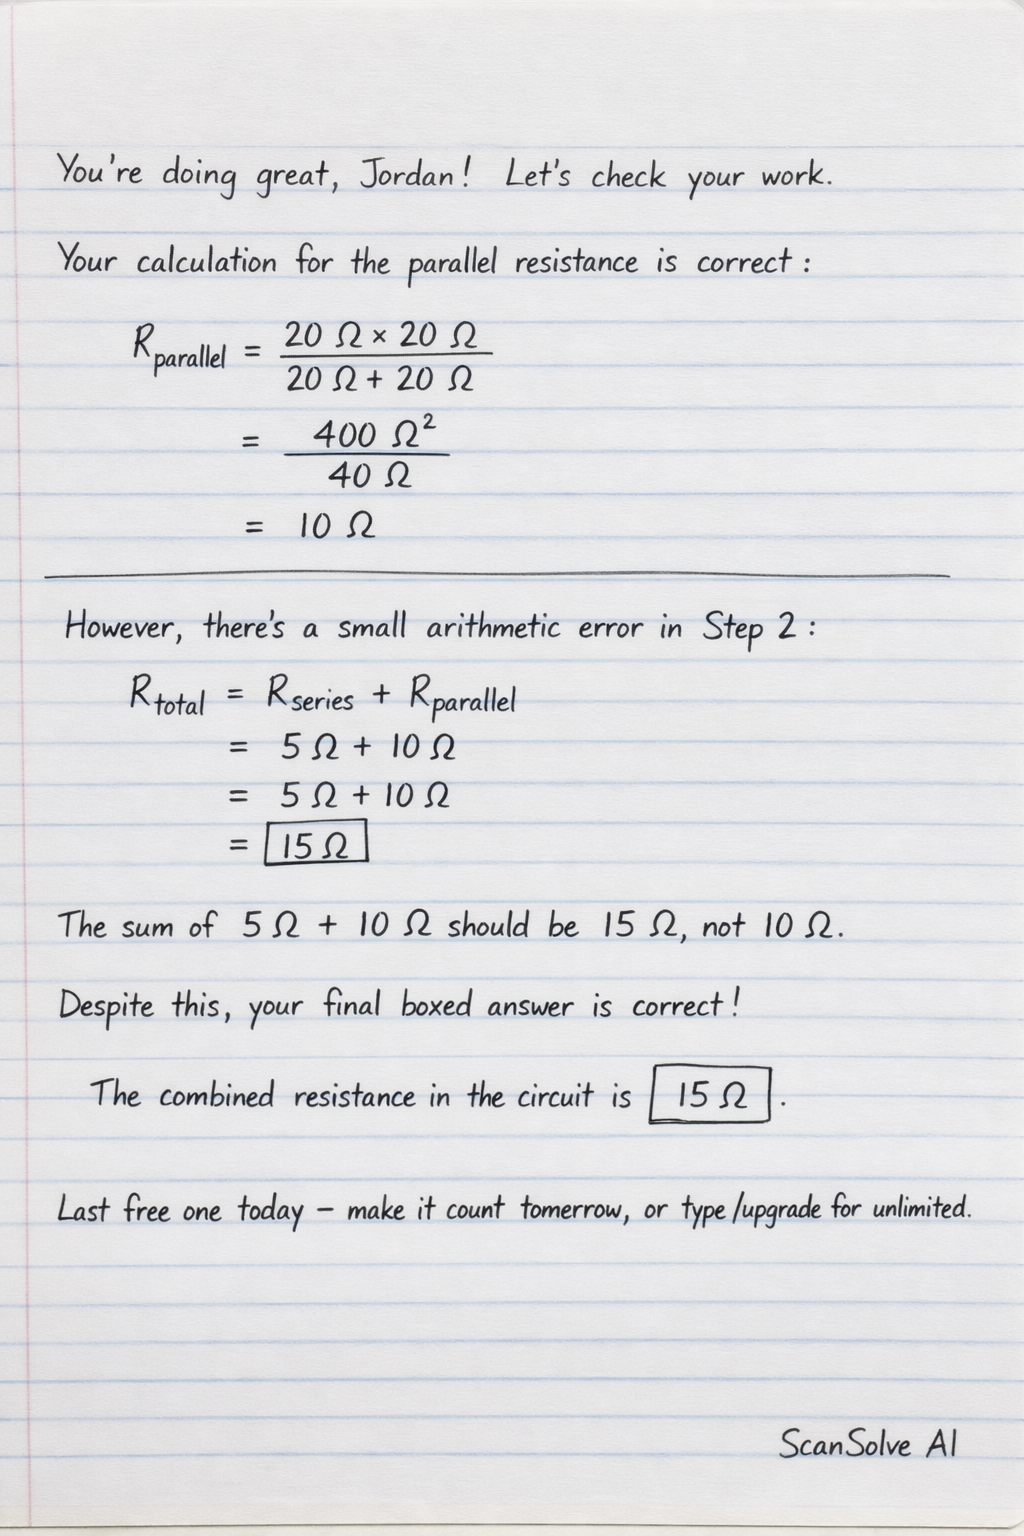 You're doing great, Jordan! Let's check your work.
Your calculation for the parallel resistance is correct:
R parallel = 20 Ω × 20 Ω
20 Ω + 20 Ω
= 400 Ω²
40 Ω
= 10 Ω
However, there's a small arithmetic error in Step 2:
R total = R series + R parallel
= 5 Ω + 10 Ω
= 5 Ω + 10 Ω
= 15 Ω
The sum of 5 Ω + 10 Ω should be 15 Ω, not 10 Ω.
Despite this, your final boxed answer is correct!
The combined resistance in the circuit is 15 Ω.
Last free one today – make it count tomerrow, or type /upgrade for unlimited.
ScanSolve AI